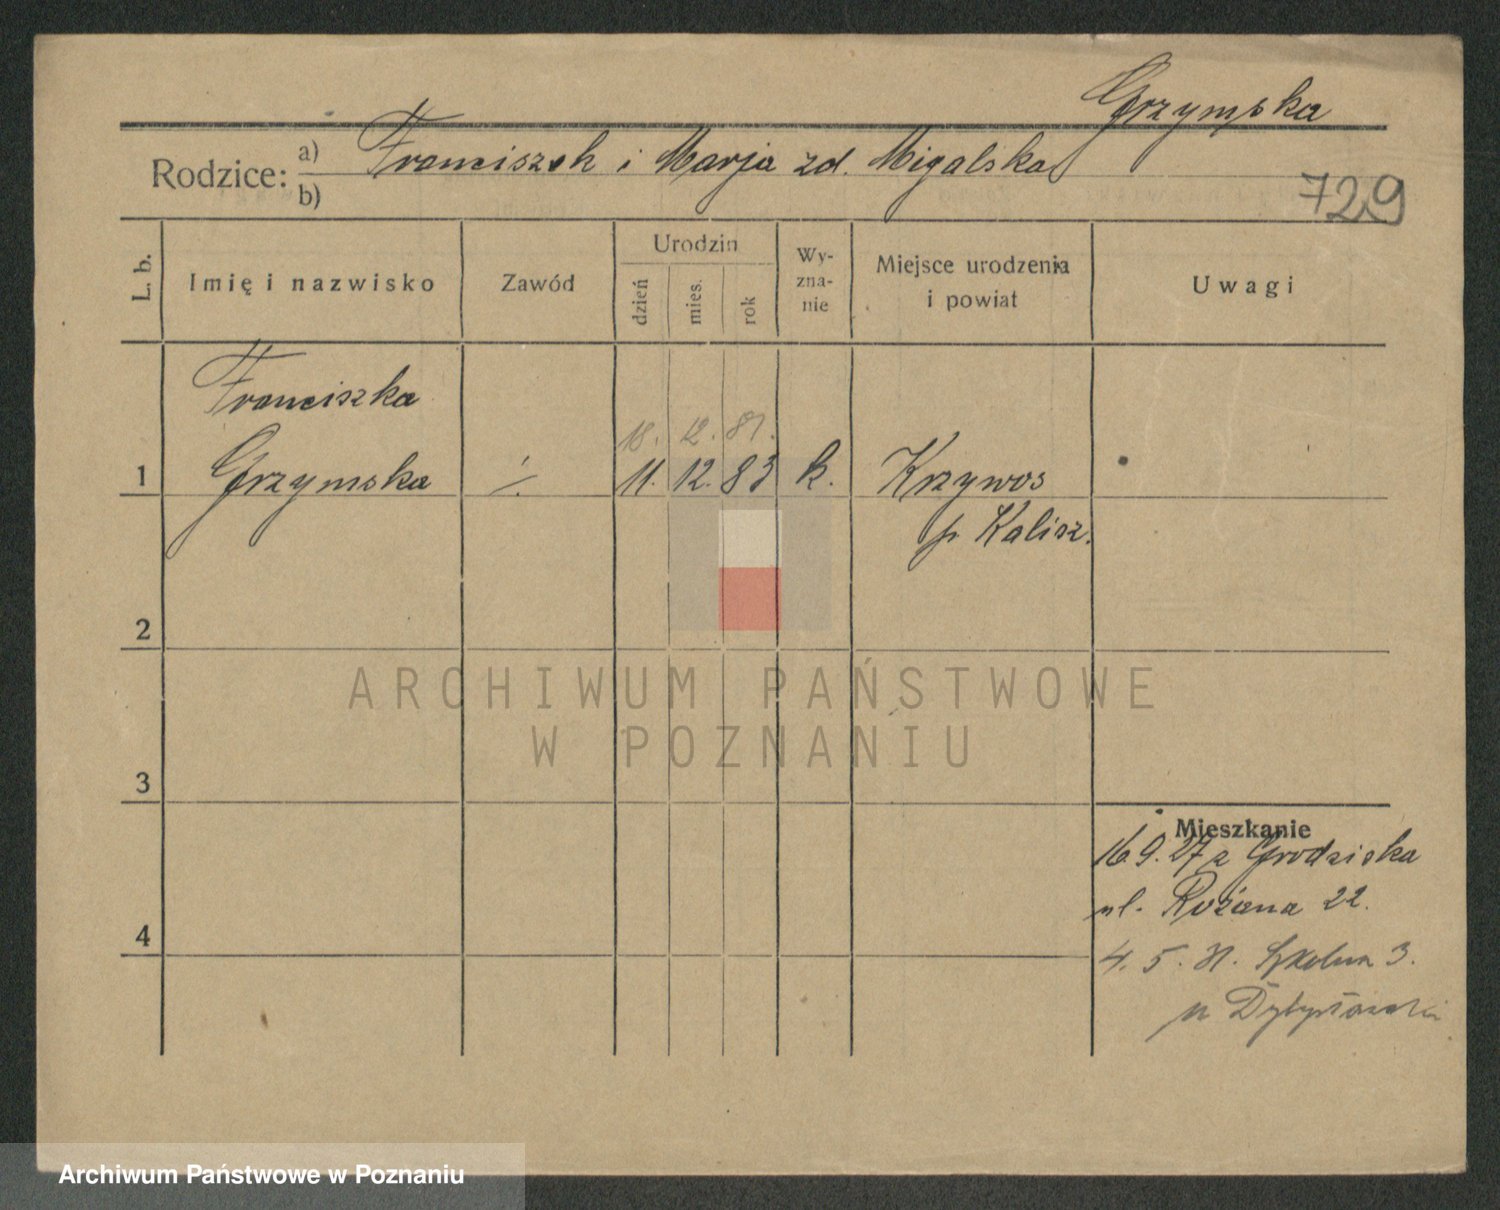 Grzymska
Rodzice: a) Franciszek i Marja zd. Migalska
b)
729
L. b. Imię i nazwisko Zawód Urodzin dzień mies. rok Wyznanie Miejsce urodzenia i powiat Uwagi
Franciszka
18. 12. 81.
1 Grzymska ./. 11. 12. 83 k. Krzywos
p. Kalisz.
2
ARCHIWUM PAŃSTWOWE
W POZNANIU
3
Mieszkanie
16.9.27 z Grodziska
ul. Różana 22.
4
4. 5. 31. Szkolna 3.
Archiwum Państwowe w Poznaniu